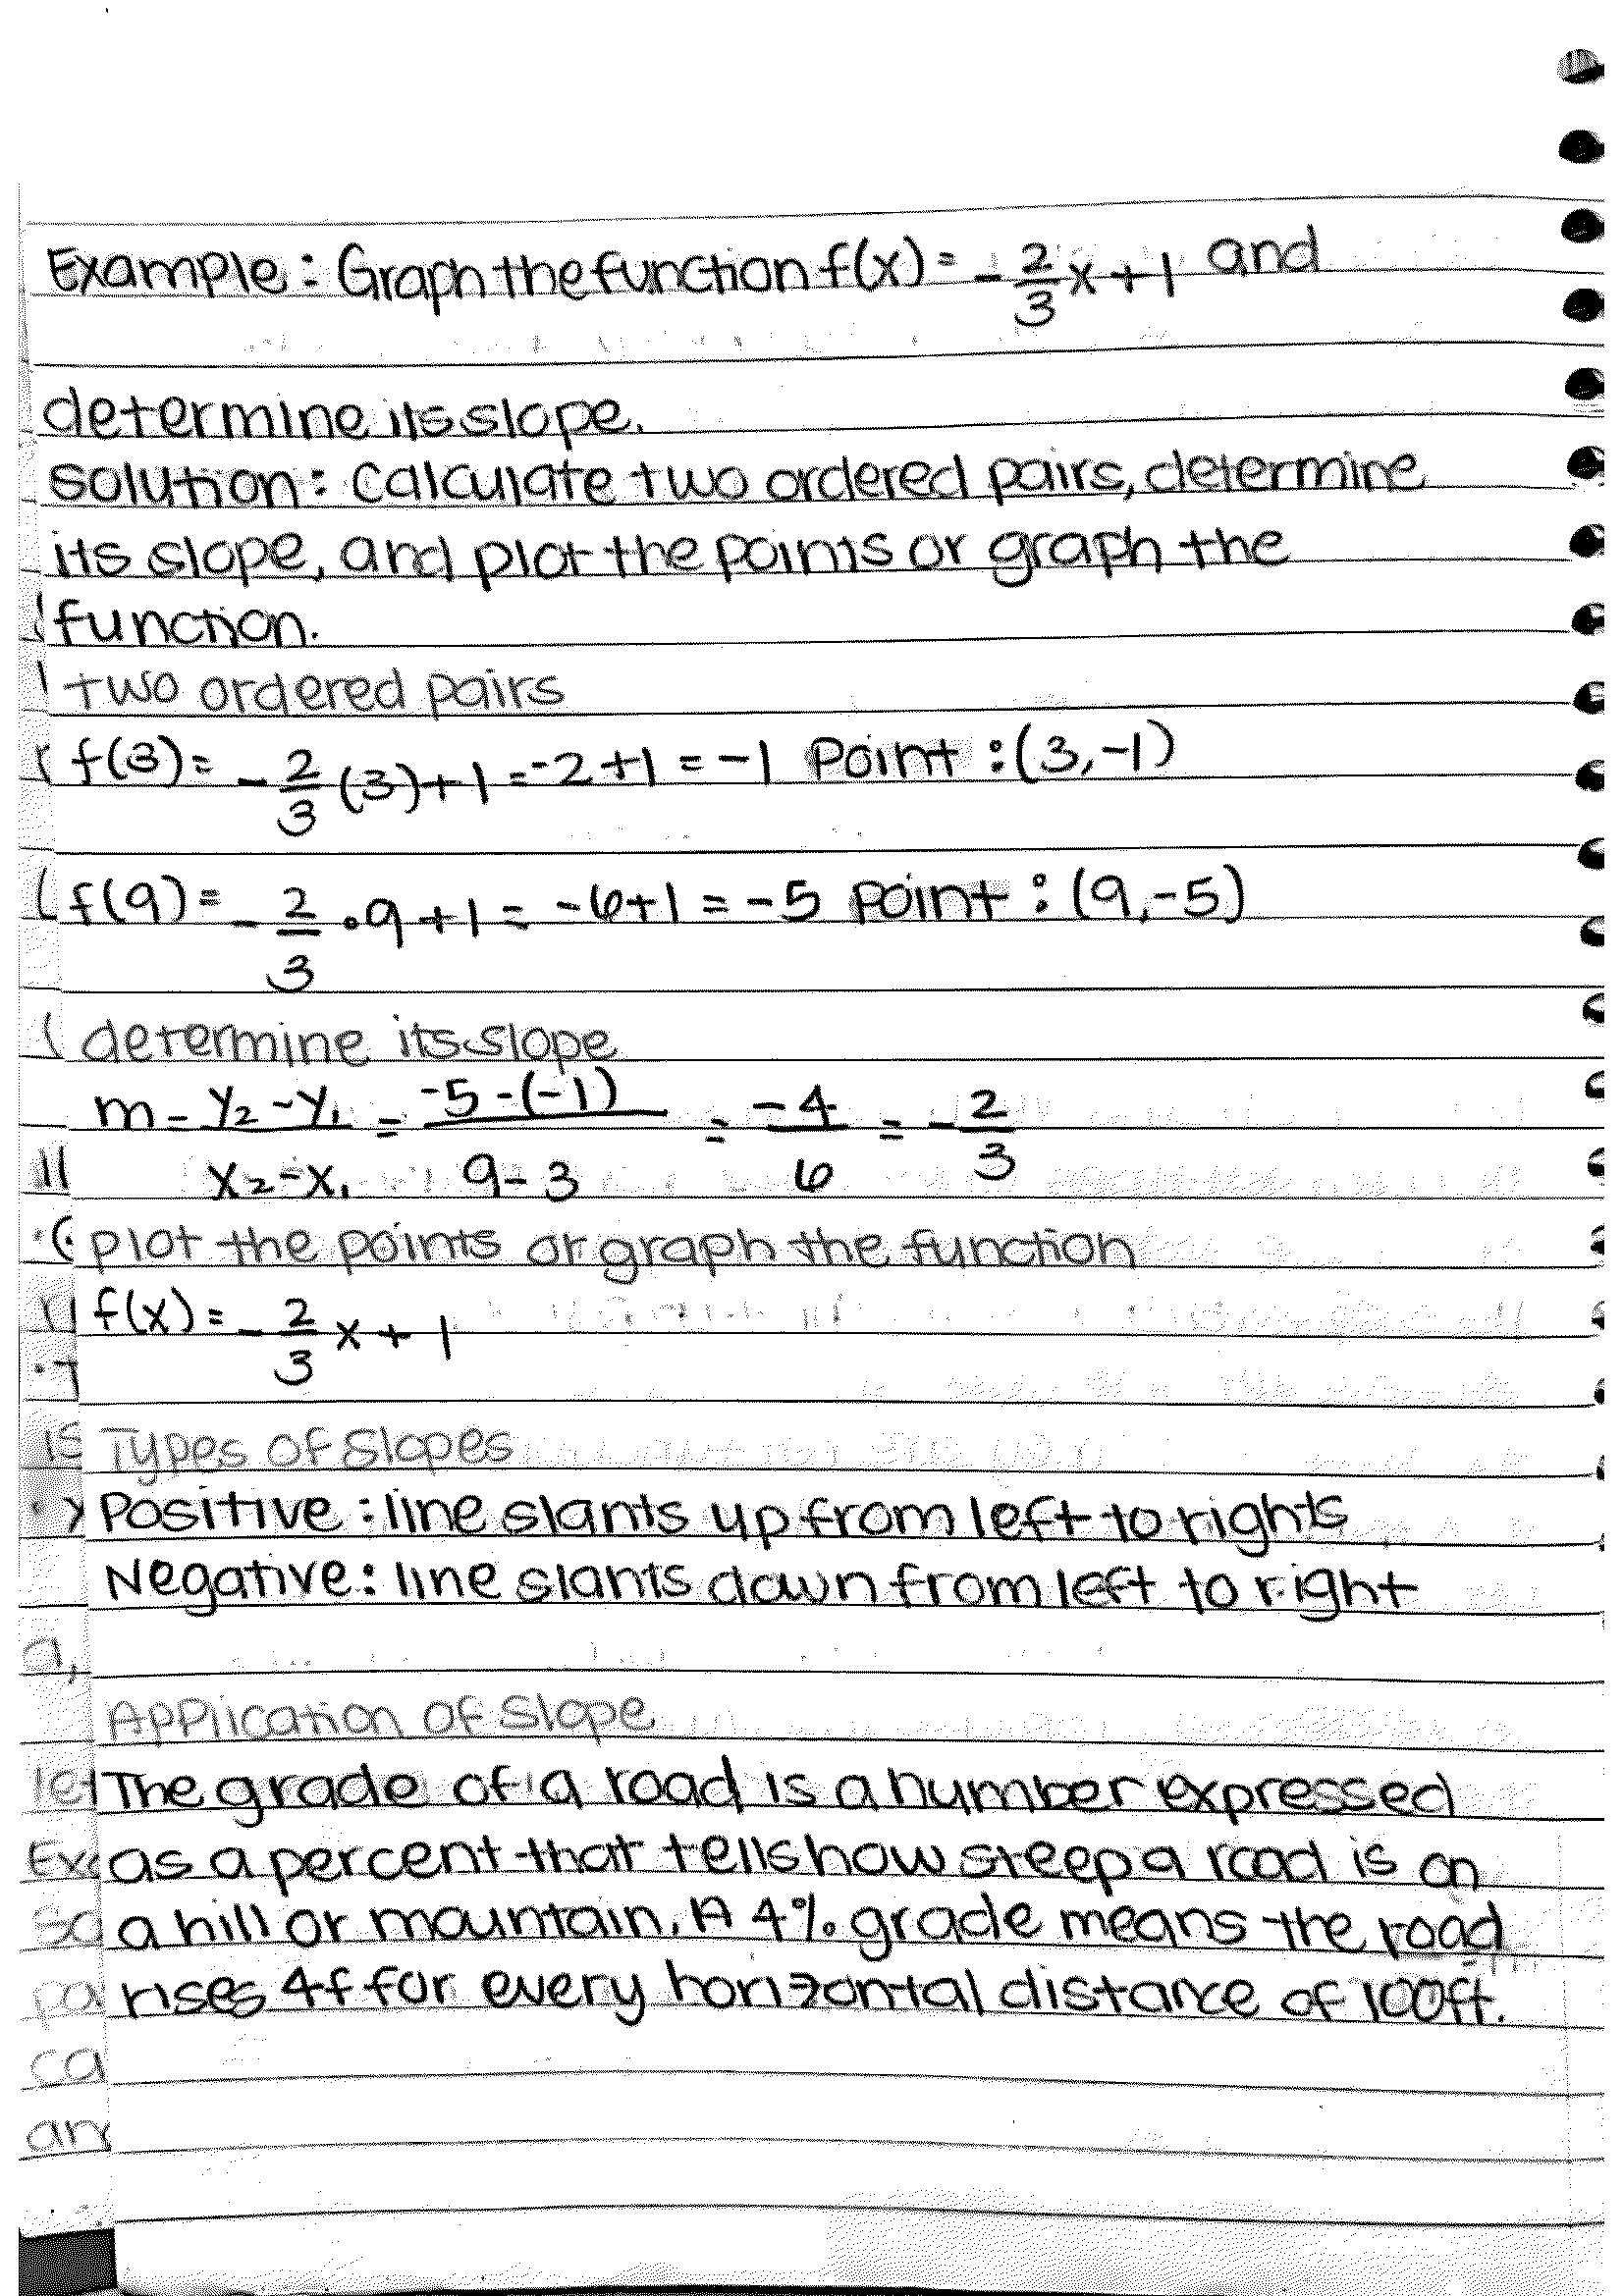 Example: Graph the function f(x) = -2/3 x + 1 and
determine its slope.
Solution: Calculate two ordered pairs, determine
its slope, and plot the points or graph the
function.
two ordered pairs
f(3) = -2/3 (3) + 1 = -2 + 1 = -1 Point : (3,-1)
f(9) = -2/3 • 9 + 1 = -6+1 = -5 Point : (9,-5)
determine its slope
m - y₂ - y₁ / x₂ - x₁ = -5 - (-1) / 9 - 3 = -4/6 = -2/3
plot the points or graph the function
f(x) = -2/3 x + 1
Types of Slopes
Positive : line slants up from left to rights
Negative : line slants down from left to right
Application of Slope
The grade of a road is a number expressed
as a percent that tells how steep a road is on
a hill or mountain. A 4% grade means the road
rises 4f for every horizontal distance of 100ft.